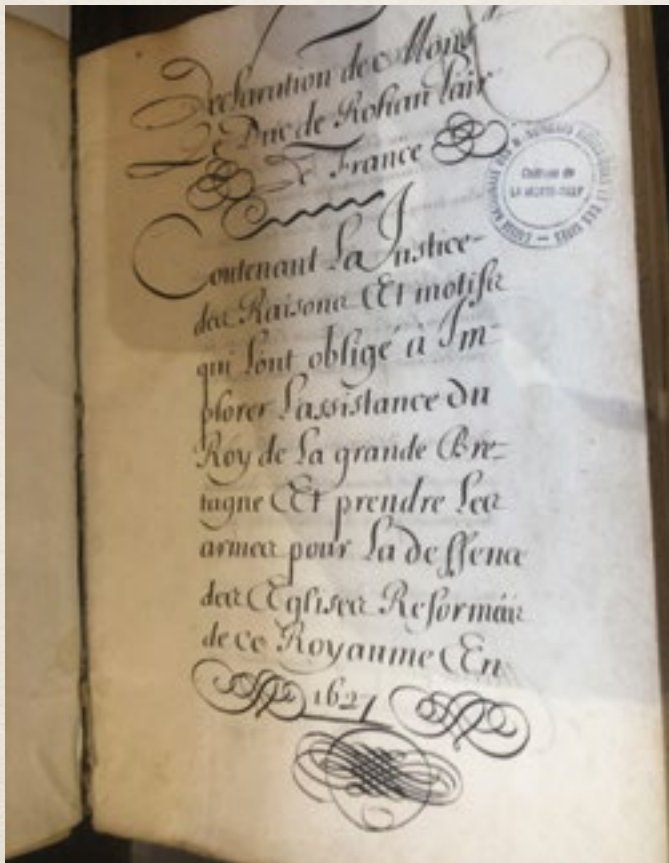 Declaration de Mons.r
Le Duc de Rohan Pair
de France
Contenant La Justice
des Raisons Et motifs
qui Lont obligé à Im-
plorer Lassistance du
Roy de La grande Bre-
tagne Et prendre Les
armes pour La deffence
des Eglises Reformées
de ce Royaume En
1627
CAISSE NATIONALE DES MONUMENTS HISTORIQUES ET DES SITES
Château de
LA MOTTE-TILLY